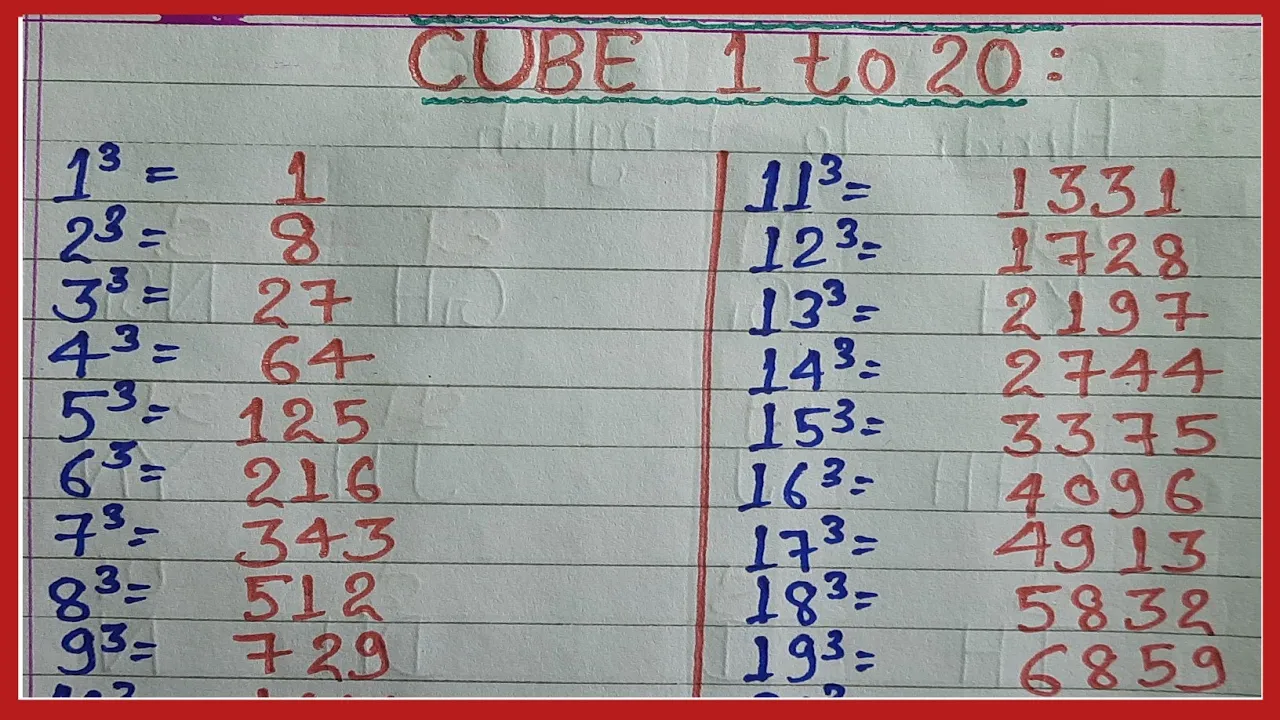 CUBE 1 to 20:
1³ = 1
2³ = 8
3³ = 27
4³ = 64
5³ = 125
6³ = 216
7³ = 343
8³ = 512
9³ = 729
11³ = 1331
12³ = 1728
13³ = 2197
14³ = 2744
15³ = 3375
16³ = 4096
17³ = 4913
18³ = 5832
19³ = 6859